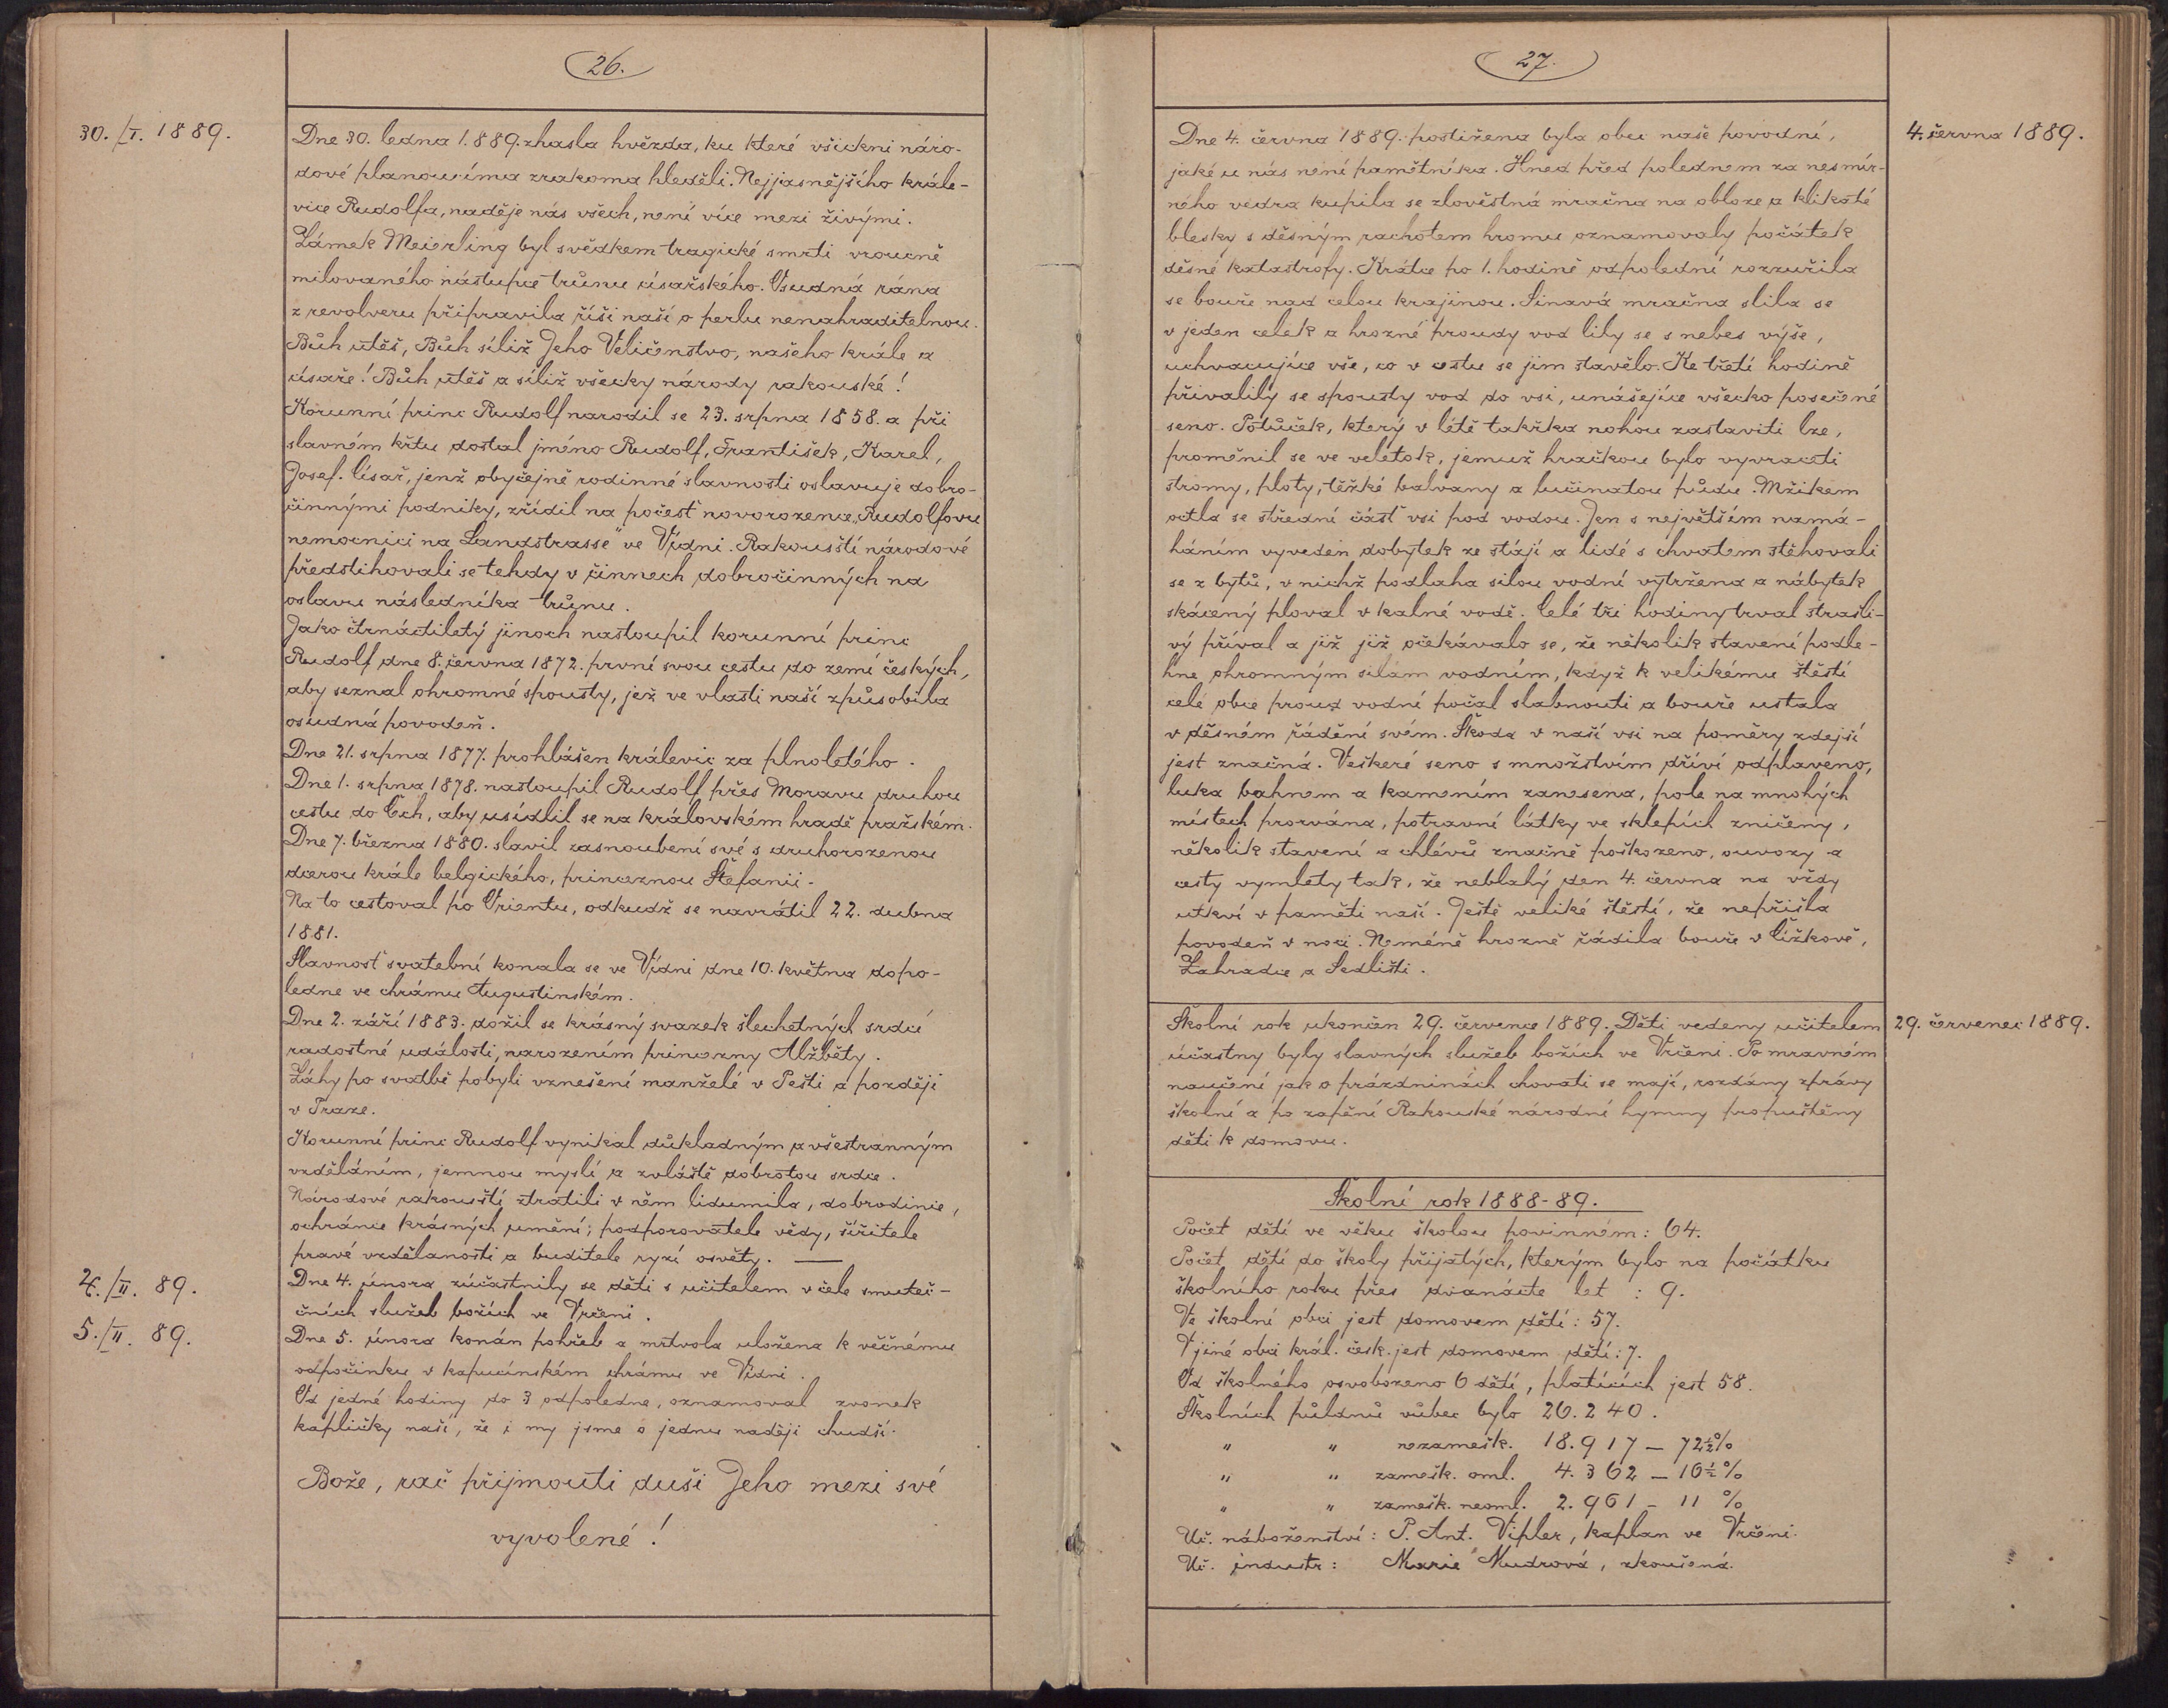 26.
30./I. 1889.
Dne 30. ledna 1.889. zhasla hvězda, ku které všickni náro-
dové planoucíma zrakoma hleděli. Nejjasnějšího krále-
vice Rudolfa, naděje nás všech, není více mezi živými.
Zámek Meierling byl svědkem tragické smrti vroucně
milovaného nástupce trůnu císařského. Osudná rána
z revolveru připravila říši naši o perlu nenahraditelnou.
Bůh utěš, Bůh siliž Jeho Veličenstvo, našeho krále a
císaře! Bůh utěš a siliž všecky národy rakouské!
Korunní princ Rudolf narodil se 23. srpna 1858. a při
slavném křtu dostal jméno Rudolf, František, Karel,
Josef. Císař, jenž obyčejně rodinné slavnosti oslavuje dobro-
činnými podniky, zřídil na počesť novorozence „Rudolfovu
nemocnici na Landstrasse" ve Vídni. Rakousští národové
předstihovali se tehdy v činnech dobročinných na
oslavu následníka trůnu.
Jako čtrnáctiletý jinoch nastoupil korunní princ
Rudolf dne 8. června 1872. první svou cestu do zemí českých,
aby seznal ohromné spousty, jež ve vlasti naší způsobila
osudná povodeň.
Dne 21. srpna 1877. prohlášen králevic za plnoletého.
Dne 1. srpna 1878. nastoupil Rudolf přes Moravu druhou
cestu do Čech, aby usídlil se na královském hradě pražském.
Dne 7. března 1880. slavil zasnoubení své s druhorozenou
dcerou krále belgického, princeznou Štefanii.
Na to cestoval po Orientu, odkudž se navrátil 22. dubna
1881.
Slavnosť svatební konala se ve Vídni dne 10. května dopo-
ledne ve chrámu Augustinském.
Dne 2. září 1883. dožil se krásný svazek šlechetných srdcí
radostné události, narozením princezny Alžběty.
Záhy po svatbě pobyli vznešení manželé v Pešti a později
v Praze.
Korunní princ Rudolf vynikal důkladným a všestranným
vzděláním, jemnou myslí a zvláště dobrotou srdce.
Národové rakouští ztratili v něm lidumila, dobrodince,
ochránce krásných umění; podporovatele vědy, šiřitele
pravé vzdělanosti a buditele ryzí osvěty. —
4./II. 89.
Dne 4. února zúčastnily se děti s učitelem v čele smuteč-
čních služeb božích ve Vrčeni.
5./II. 89.
Dne 5. února konán pohřeb a mrtvola uložena k věčnému
odpočinku v kapucínském chrámu ve Vídni.
Od jedné hodiny do 3 odpoledne, oznamoval zvonek
kapličky naší, že i my jsme o jednu naději chudší.
Bože, rač přijmouti duši Jeho mezi své
vyvolené!
27.
4. června 1889.
Dne 4. června 1889. postižena byla obec naše povodní,
jaké u nás není pamětníka. Hned před polednem za nesmír-
ného vedra kupila se zlověstná mračna na obloze a klikaté
blesky s děsným rachotem hromu oznamovaly počátek
děsné katastrofy. Krátce po 1. hodině odpolední rozzuřila
se bouře nad celou krajinou. Sinavá mračna slila se
v jeden celek a hrozné proudy vod lily se s nebes výše,
uchvacujíce vše, co v cestu se jim stavělo. Ke třetí hodině
přivalily se spousty vod do vsi, unášejíce všecko posečené
seno. Potůček, který v létě takřka nohou zastaviti lze,
proměnil se ve veletok, jemuž hračkou bylo vyvraceti
stromy, ploty, těžké balvany a lučinatou půdu. Mžikem
octla se střední část vsi pod vodou. Jen s největším namá-
háním vyveden dobytek ze stájí a lidé s chvatem stěhovali
se z bytů, v nichž podlaha silou vodní vytržena a nábytek
skácený ploval v kalné vodě. Celé tři hodiny trval strašli-
vý příval a již již očekávalo se, že několik stavení podle-
hne ohromným silám vodním, když k velikému štěstí
celé obce proud vodní počal slabnouti a bouře ustala
v děsném řádění svém. Škoda v naší vsi na poměry zdejší
jest značná. Veškeré seno s množstvím dříví odplaveno,
luka bahnem a kamením zanesena, pole na mnohých
místech prorvána, potravní látky ve sklepích zničeny,
několik stavení a chlévů značně poškozeno, ouvozy a
cesty vymlety tak, že neblahý den 4. června na vždy
utkví v paměti naší. Ještě veliké štěstí, že nepřišla
povodeň v noci. Neméně hrozně řádila bouře v Čížkově,
Zahradce a Sedlišti.
29. červenec 1889.
Školní rok ukončen 29. července 1889. Děti vedeny učitelem
účastny byly slavných služeb božích ve Vrčeni. Po mravném
naučení jak o prázdninách chovati se mají, rozdány zprávy
školní a po zapění Rakouské národní hymny propuštěny
děti k domovu.
Školní rok 1888-89.
Počet dětí ve věku školou povinném: 64.
Počet dětí do školy přijatých, kterým bylo na počátku
školního roku přes dvanácte let : 9.
Ve školní obci jest domovem dětí: 57.
V jiné obci král. česk. jest domovem dětí: 7.
Od školného osvobozeno 6 dětí, platících jest 58.
Školních půldnů vůbec bylo 26.240.
" " nezamešk. 18.917 — 72½%
" " zamešk. oml. 4.362 — 16½%
" " zamešk. neoml. 2.961 — 11 %
Uč. náboženství: P. Ant. Vipler, kaplan ve Vrčeni.
Uč. industr: Marie Mudrová, zkoušená.